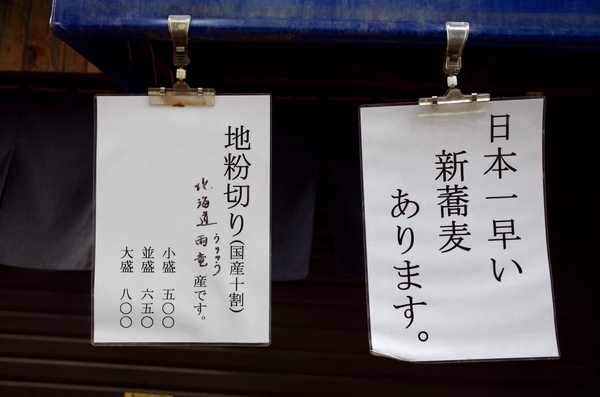 日本一早い
新蕎麦
あります。
地粉切り(国産十割)
北海道雨竜産です。
うりゅう
小盛 五〇〇
並盛 六五〇
大盛 八〇〇